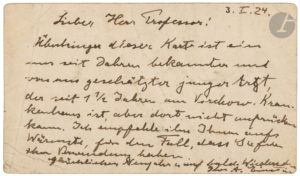 3. I. 24.
Lieber Herr Professor!
Überbringer dieser Karte ist ein
uns seit Jahren bekannter und
von uns geschätzter junger Arzt
der seit 1 1/2 Jahren am Virchow-Kran-
kenhaus ist, aber dort nicht aufrücken
kann. Ich empfehle ihn Ihnen aufs
Wärmste, für den Fall, dass Sie
haben.
Glückliches Neujahr und
Ihr A.